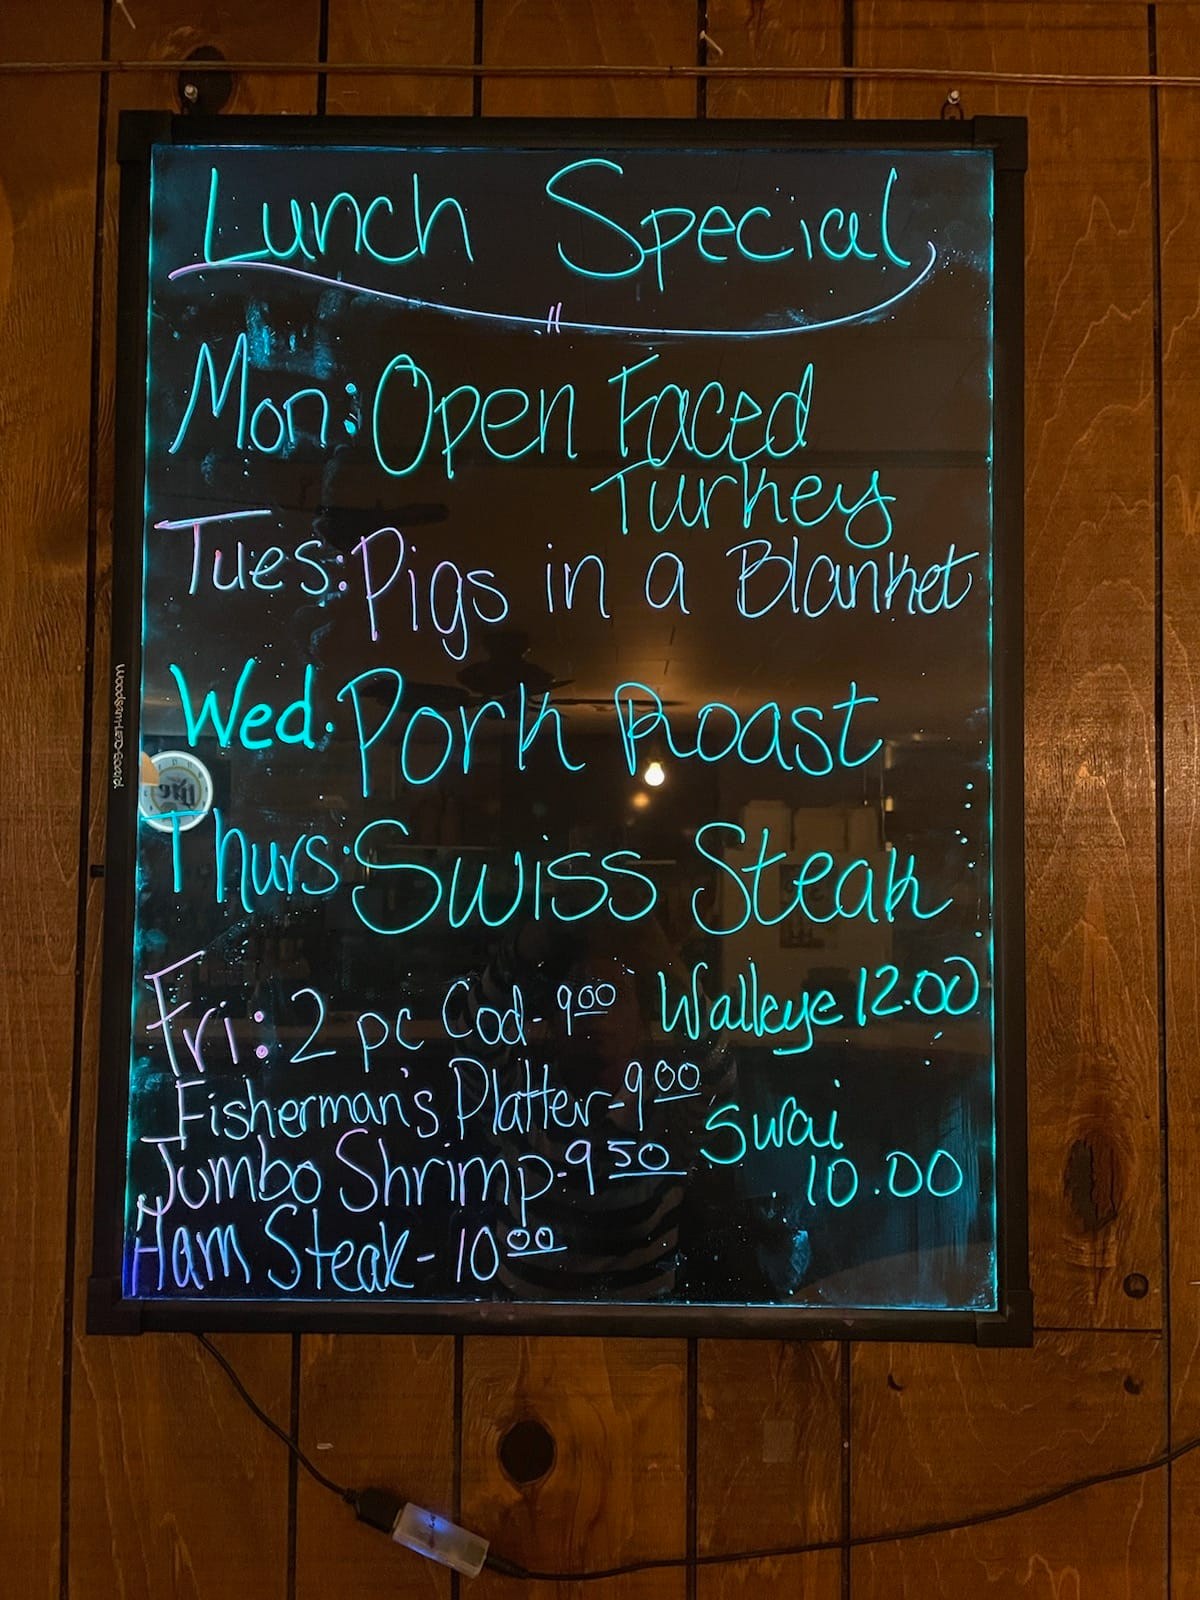 Lunch Special
Mon: Open Faced
Turkey
Tues: Pigs in a Blanket
Wed. Pork Roast
Thurs. Swiss Steak
Fri: 2 pc Cod - 9 00 Walleye 12.00
Fisherman's Platter - 9 00
Swai
10.00
Jumbo Shrimp - 9 50
Ham Steak - 10 00